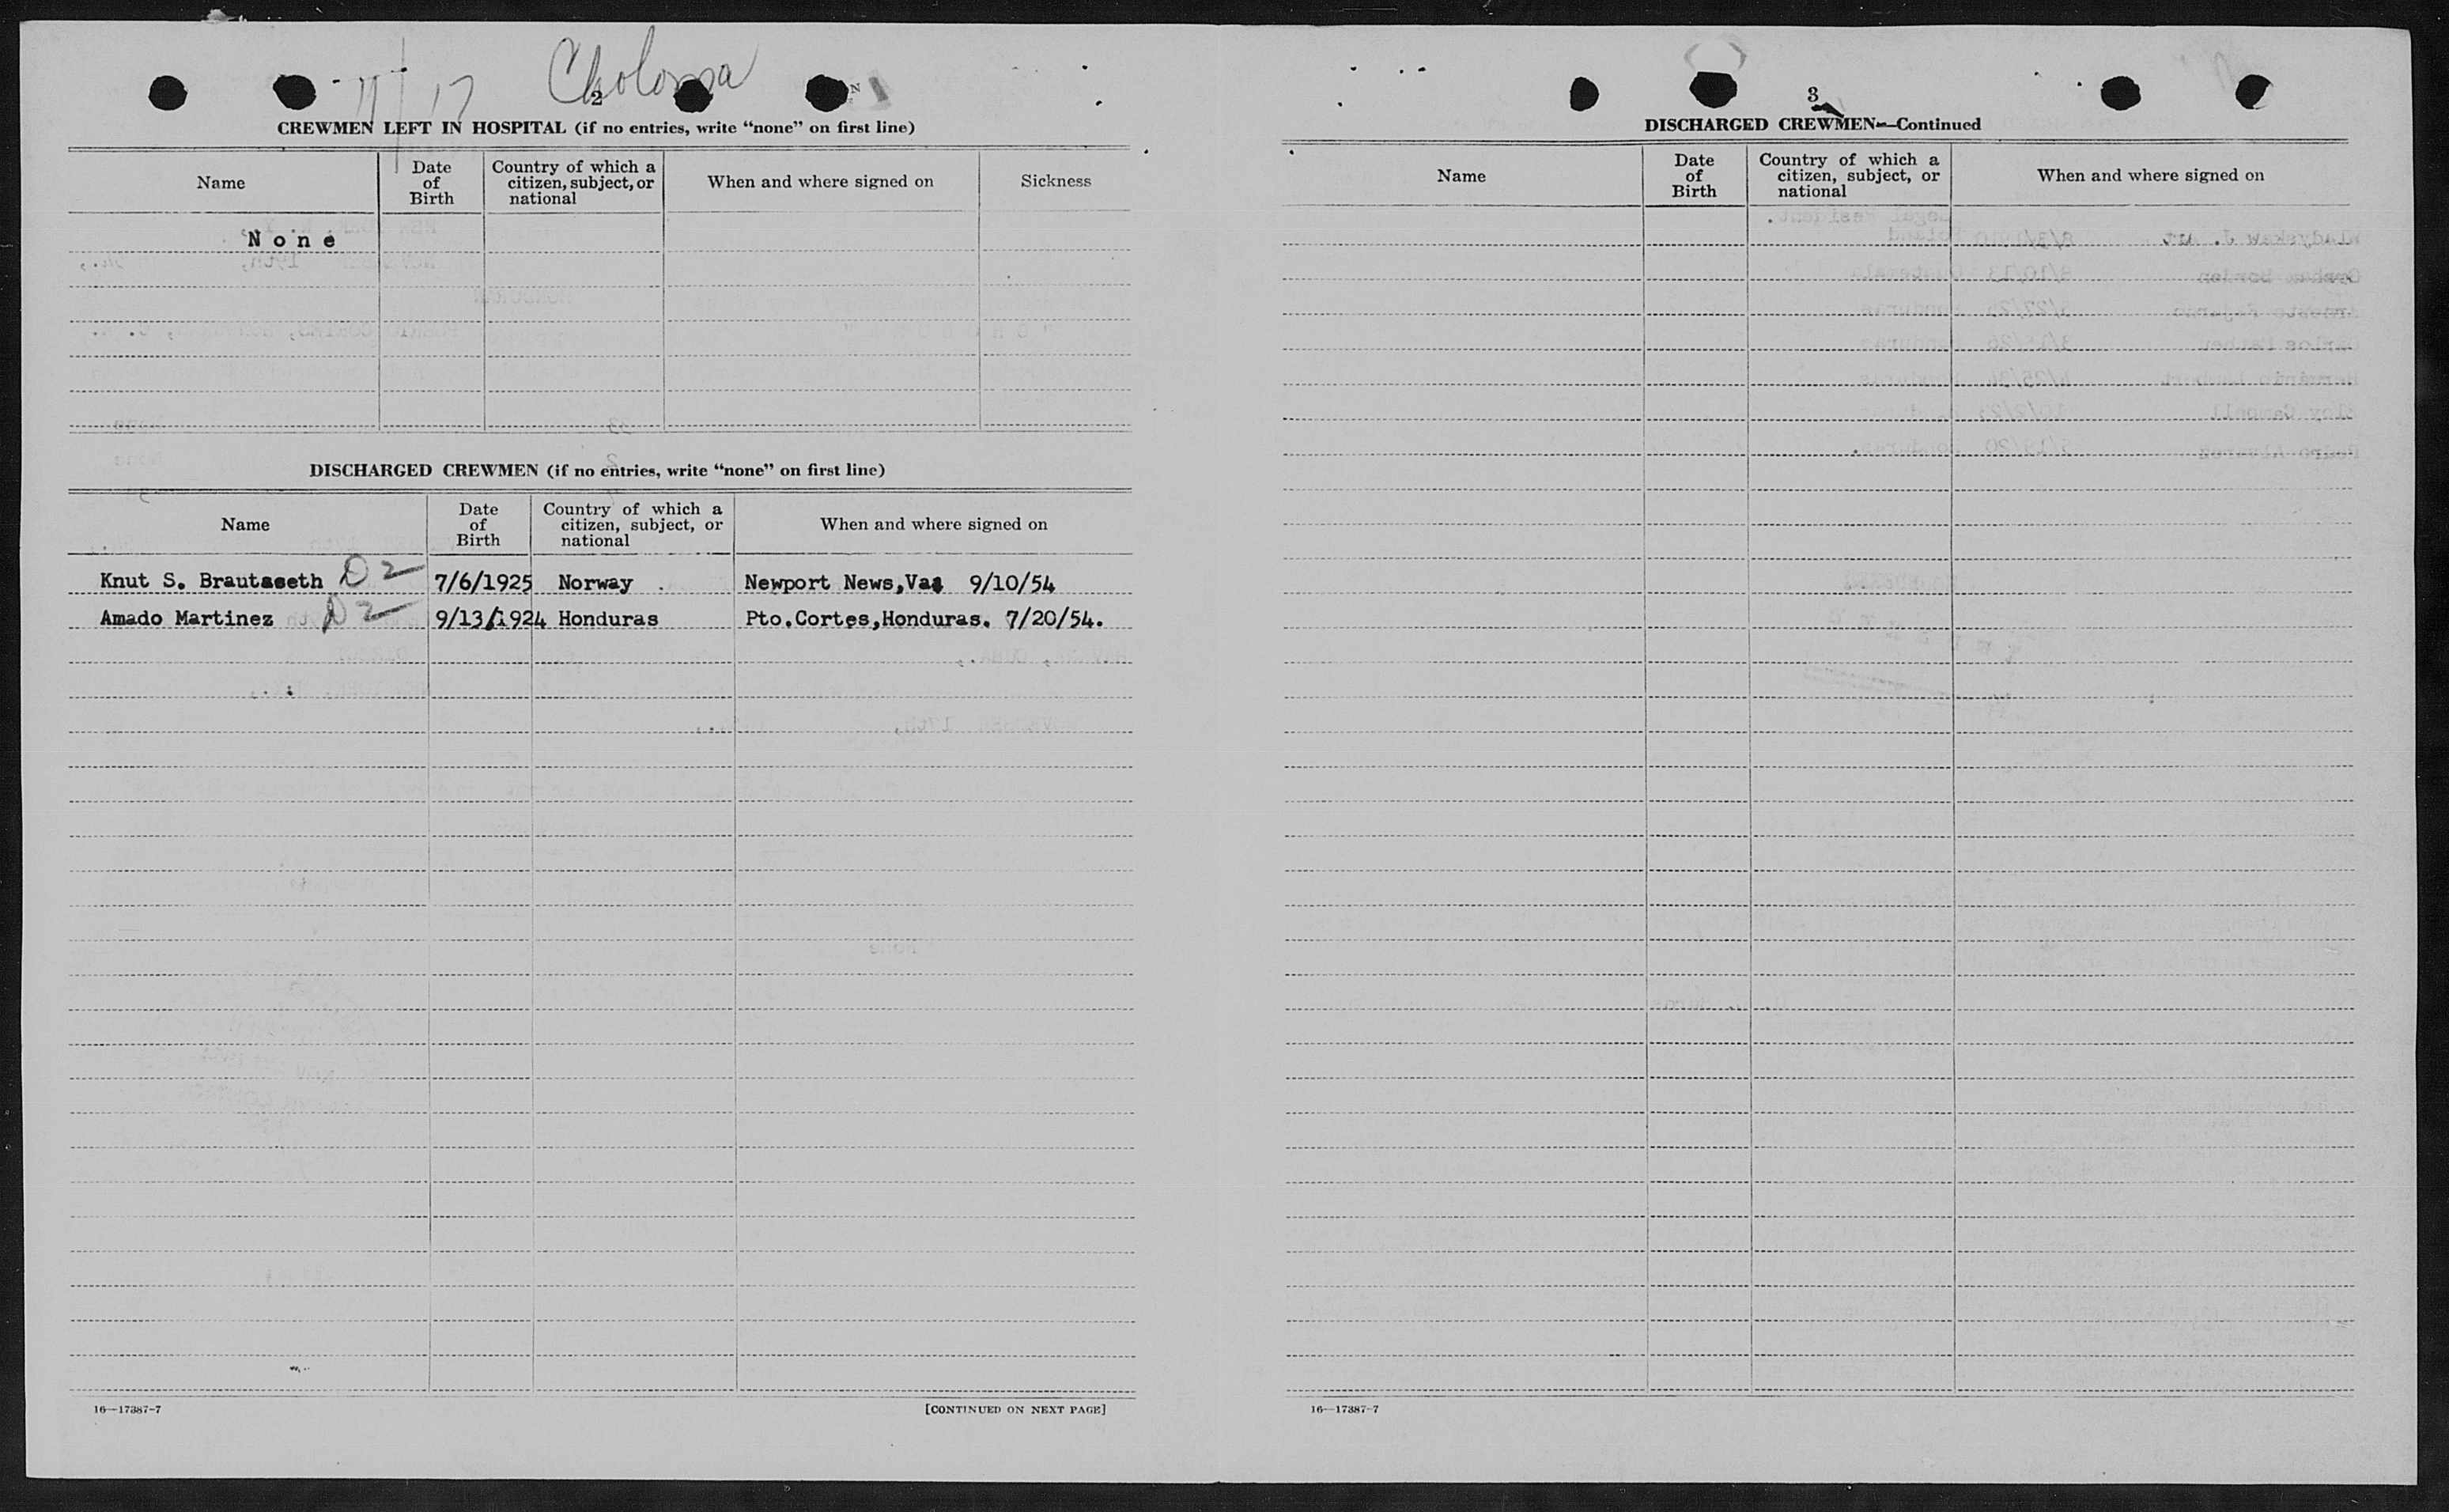 11/17 Choloma
2
CREWMEN LEFT IN HOSPITAL (if no entries, write “none” on first line)
Name Date of Birth Country of which a citizen, subject, or national When and where signed on Sickness
None
DISCHARGED CREWMEN (if no entries, write “none” on first line)
Name Date of Birth Country of which a citizen, subject, or national When and where signed on
Knut S. Brautaseth D2 7/6/1925 Norway Newport News,Va. 9/10/54
Amado Martinez D2 9/13/1924 Honduras Pto.Cortes,Honduras. 7/20/54.
16—17387-7 [CONTINUED ON NEXT PAGE]
3
DISCHARGED CREWMEN—Continued
Name Date of Birth Country of which a citizen, subject, or national When and where signed on
16—17387-7